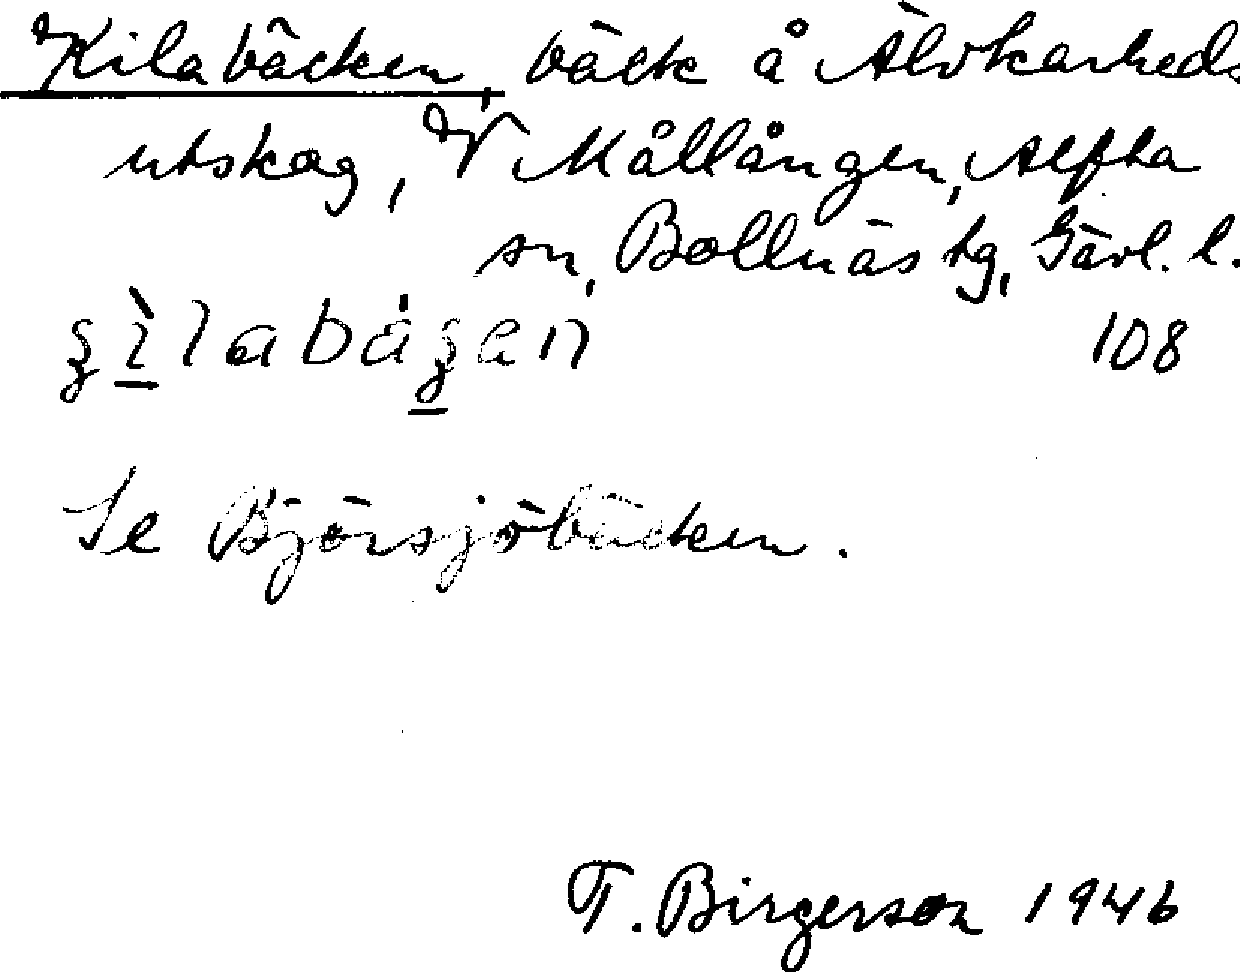 Kilabäcken, bäck å Älvkarheds
utskog, V Mållången, Alfta
sn, Bollnäs tg, Gävl. l.
108
Se Björsjöbäcken.
T. Birgerson 1946